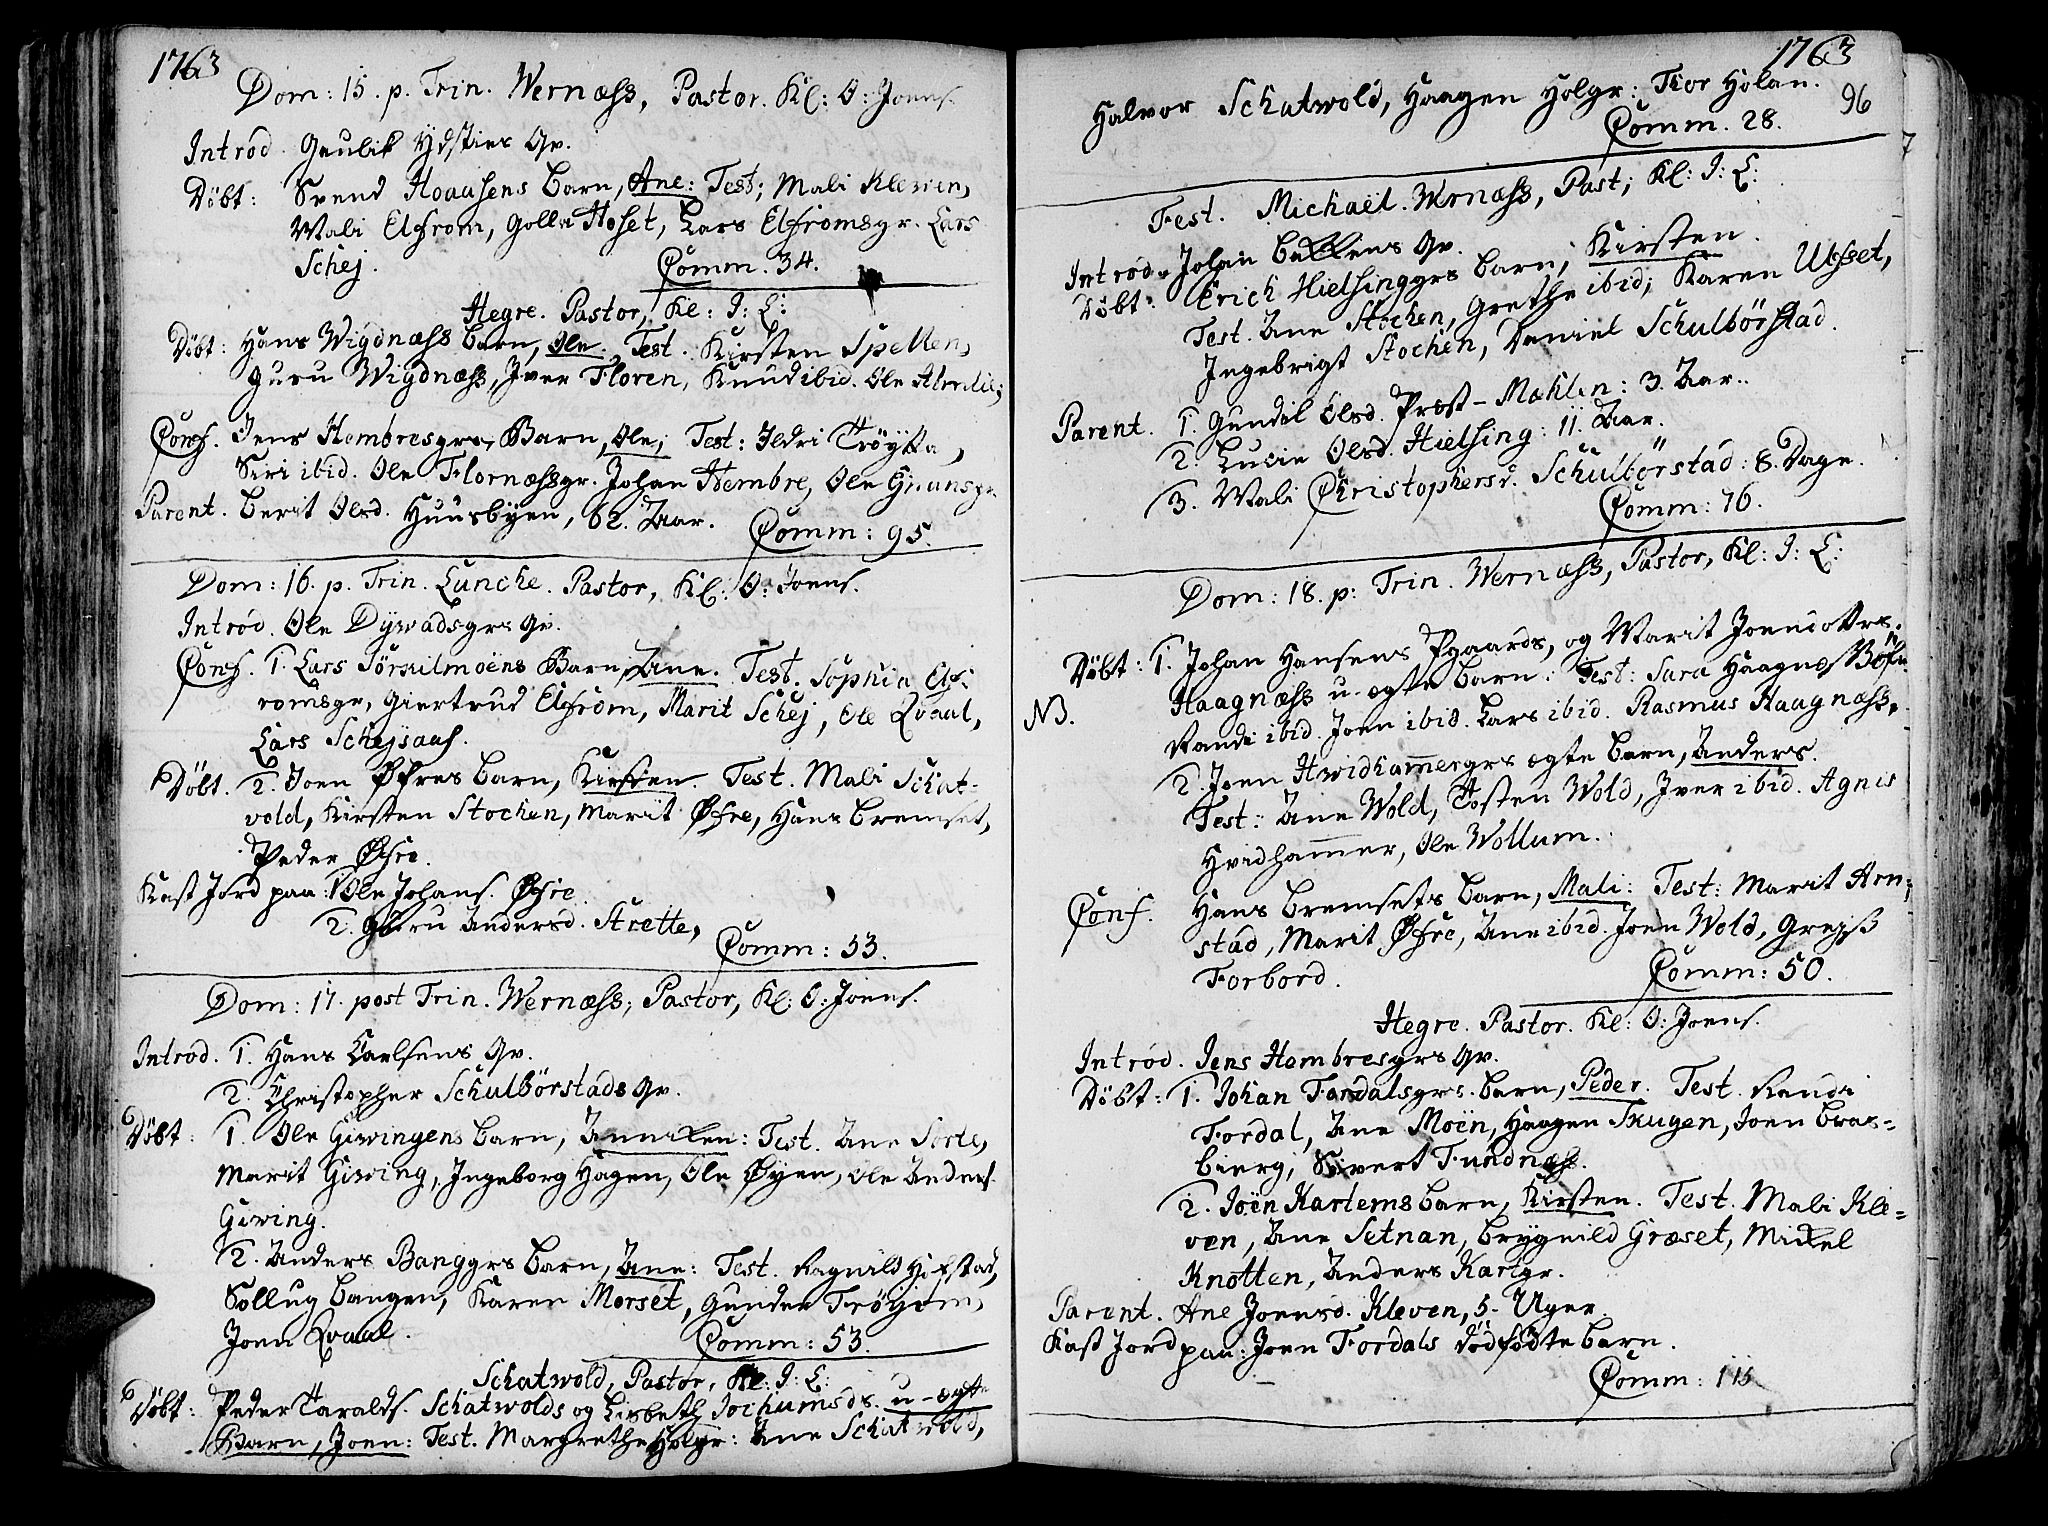 1763
Dom: 15. p. Trin. Wernæss, Pastor. Kl: O: Joens.
Introd. Gaulik Ydsties Qv.
Döbt: Svend Hoaasens Barn, Ane: Test; Mali Kleven,
Mali Elfrom, Golla Hoset, Lars Elfromsgr. Lars
Schej. Comm. 34.
Hegre. Pastor, Kl: I: L:
Döbt: Hans Wigdnæss Barn, Ole. Test. Kirsten Spelken,
Guru Wigdnæss, Iver Floren, Knud ibid. Ole
Conf. Jens Hembresgrs Barn, Ole; Test: Ildri Tröyta,
Siri ibid. Ole Flornæssgr. Johan Hembre, Ole
Parent. Berit Olsd. Huusbyen, 62. Aar. Comm: 95.
Dom: 16. p. Trin. Luncke. Pastor, Kl: O: Joens.
Introd. Ole Dywadsgrs Qv.
Conf. 1. Lars Sörmilmoëns Barn, Ane. Test. Sophia Elf:
romsgr, Giertrud Elfrom, Marit Schej, Ole Qvaal,
Lars Schejsaas.
Döbt. 2. Joen Øfres Barn, Kirsten. Test. Mali Schat-
vold, Kirsten Stochen, Marit Øfre, Hans Bremset,
Peder Øfre.
Kast Jord paa: 1. Ole Johans. Øfre
2. Guru Andersd. Strette,
Comm: 53.
Dom: 17. post Trin. Wernæss; Pastor, Kl: O: Joens.
Introd. 1. Hans Carlsens Qv.
2. Christopher Schulbörstads Qv.
Döbt: 1. Ole Giwingens Barn, Anniken: Test. Ane Sorte,
Marit Giwing, Ingeborg Hagen, Ole Øyen, Ole Anders.
Giwing.
2. Anders Banggrs Barn, Ane: Test. Ragnild Hofstad,
Sollug Bangen, Karen Morset, Gunder Tröyem,
Joen Qvaal. Comm: 53.
Schatwold, Pastor, Kl: I: L:
Döbt: Peder Taralds. Schatwolds og Lisbeth Jochumsds. u-ægte
Barn, Joen: Test. Margrethe Holgr: Ane Schatwold,
1763
96
Halvor Schatwold, Haagen Holgr: Tor Holan.
Comm. 28.
Fest. Michaël. Wernæss, Past; Kl: I: L:
Introd. Johan Ballens Qv.
Döbt: Erich Hielsinggrs Barn, Kirsten.
Test. Ane Stochen, Grethe ibid; Karen Ulsset,
Ingebrigt Stochen, Daniel Schulbörstad.
Parent. 1. Gundel Olsd. Præst-Mæhlen: 3. Aar.
2. Lucie Olsd. Hielsing: 11. Aar.
3. Mali Christophersd. Schulbörstad: 8. Dage.
Comm: 76.
Dom: 18. p: Trin. Wernæss, Pastor, Kl: I: L:
Döbt: 1. Johan Hansens Øgaards, og Marit Joensdottrs.
NB. Haagnæss u-ægte Barn: Test: Sara Haagnes
Randi ibid. Joen ibid. Lars ibid. Rasmus Haagnæss.
2. Joen Hwidhamergrs ægte Barn, Anders.
Test: Ane Wold, Tosten Wold, Iver ibid. Agnis
Hvidhammer, Ole Wollum.
Conf. Hans Bremsets Barn, Mali: Test: Marit Arn:
stad, Marit Øfre, Ane ibid. Joen Wold, Gregss
Forbord. Comm: 50.
Hegre. Pastor. Kl: O: Joens.
Introd. Jens Hembresgrs Qv.
Döbt: 1. Johan Fordalsgrs. Barn, Peder. Test. Randi
Fordal, Ane Moën, Haagen Skugen, Joen Bras-
bierg, Sivert Fundnæss.
2. Joën Kartems Barn, Kirsten. Test. Mali Kle-
ven, Ane Setnan, Brygnild Græset, Mikkel
Knotten, Anders Kartgr.
Parent. Ane Joensd. Kleven, 5. Uger.
Kast Jord paa: Joen Fordals dödfödte Barn.
Comm: 115